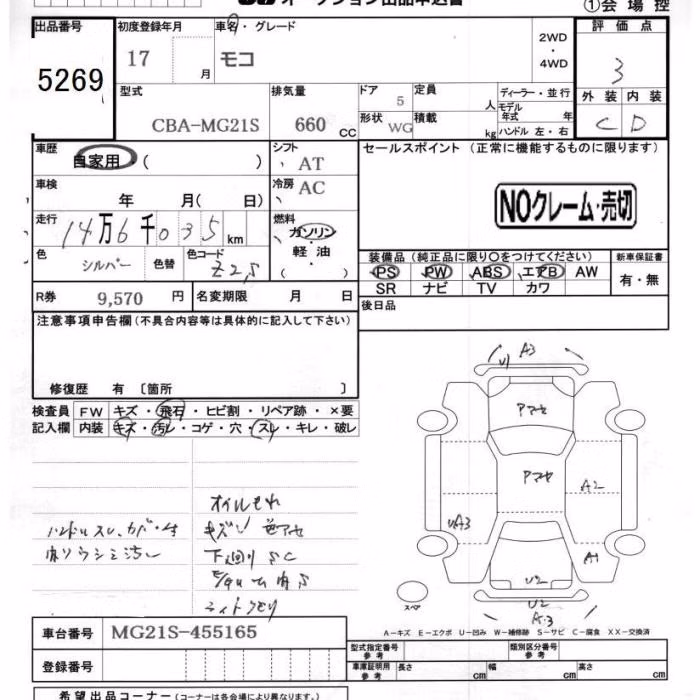 オークション出品申込書
①会場控
出品番号
5269
初度登録年月
17 月
車名・グレード
モコ
2WD
・
4WD
評価点
3
外装 内装
C D
型式
CBA-MG21S
排気量
660 CC
ドア
5
形状 WG
定員
人
積載
kg
ディーラー・並行
モデル年式 年
ハンドル 左・右
車歴
自家用 ( )
シフト
AT
車検
年 月( 日)
冷房
AC
走行
14万6千035km
燃料
ガソリン
軽油
( )
色
シルバー
色替
色コード
Z2S
R券
9,570 円
名変期限 月 日
セールスポイント (正常に機能するものに限ります)
NOクレーム・売切
装備品(純正品に限り○をつけてください)
PS PW ABS エアB AW
SR ナビ TV カワ
新車保証書
有・無
後日品
注意事項申告欄(不具合内容等は具体的に記入して下さい)
修復歴 有 〔箇所 〕
検査員
記入欄
FW キズ・飛石・ヒビ割・リペア跡・×要
内装 キズ・汚レ・コゲ・穴・スレ・キレ・破レ
オイルもれ
キズ
下廻りSC
U1 A3
アマセ
アマセ
A2
UA3
A1
U2
U2
A3
スペア
A－キズ E－エクボ U－凹み W－補修跡 S－サビ C－腐食 XX－交換済
車台番号
MG21S-455165
登録番号
型式指定番号
参考
類別区分番号
参考
車庫証明用
参考
長さ cm 幅 cm 高さ cm
希望出品コーナー(コーナーは各会場により異なります。)